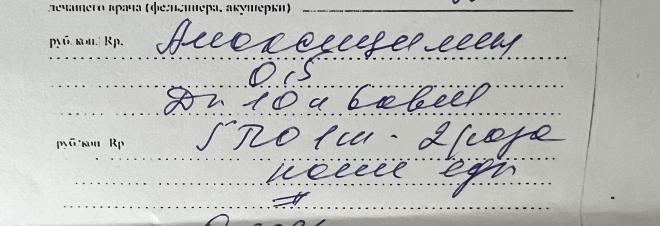 лечащего врача (фельдшера, акушерки)
руб. коп. Rp. Амоксициллин
0,5
10
руб. коп Rp S ПО 1 т - 2 раза
после еды